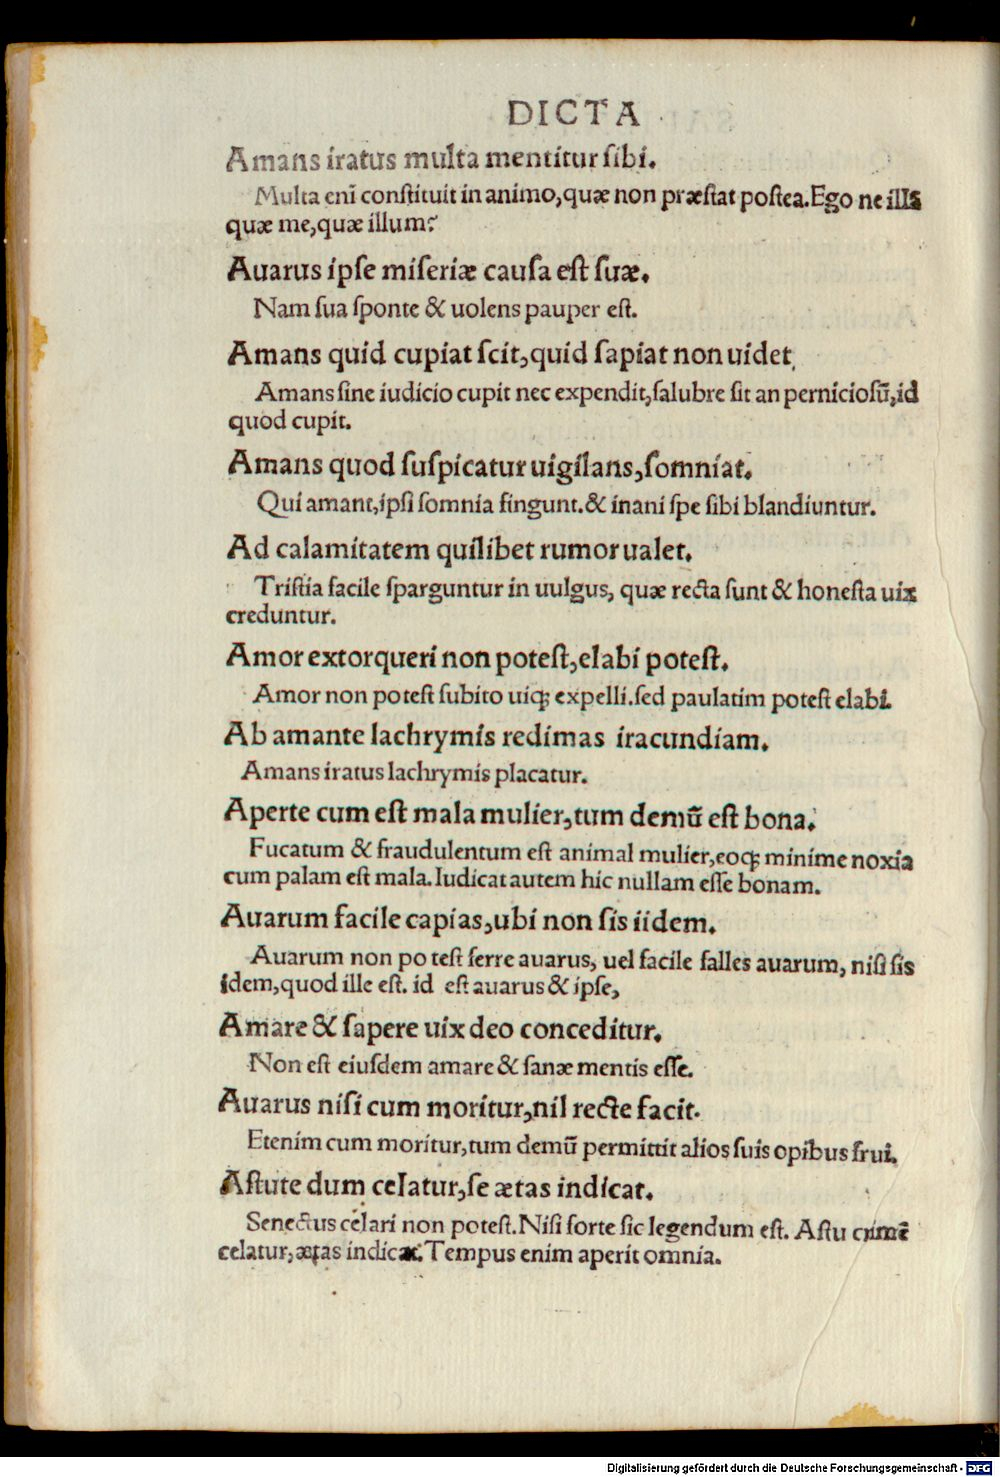 DICTA
Amans iratus multa mentitur sibi.
Multa enī constituit in animo,quæ non præstat postea.Ego ne illā
quæ me,quæ illum?
Auarus ipse miseriæ causa est suæ.
Nam sua sponte & uolens pauper est.
Amans quid cupiat scit,quid sapiat non uidet.
Amans sine iudicio cupit nec expendit,salubre sit an perniciosū,id
quod cupit.
Amans quod suspicatur uigilans,somniat.
Qui amant,ipsi somnia fingunt.& inani spe sibi blandiuntur.
Ad calamitatem quilibet rumor ualet.
Tristia facile sparguntur in uulgus, quæ recta sunt & honesta uix
creduntur.
Amor extorqueri non potest,elabi potest.
Amor non potest subito uiq; expelli.sed paulatim potest elabi.
Ab amante lachrymis redimas iracundiam.
Amans iratus lachrymis placatur.
Aperte cum est mala mulier,tum demū est bona.
Fucatum & fraudulentum est animal mulier,eoq; minime noxia
cum palam est mala.Iudicat autem hic nullam esse bonam.
Auarum facile capias,ubi non sis iidem.
Avarum non po test ferre avarus, uel facile falles avarum, nisi sis
idem,quod ille est. id est avarus & ipse,
Amare & sapere uix deo conceditur.
Non est eiusdem amare & sanæ mentis esse.
Auarus nisi cum moritur,nil recte facit.
Etenim cum moritur,tum demū permittit alios suis opibus frui.
Astute dum celatur,se ætas indicat.
Senectus celari non potest.Nisi forte sic legendum est. Astu crimē
celatur,ætas indicat.Tempus enim aperit omnia.
Digitalisierung gefördert durch die Deutsche Forschungsgemeinschaft - DFG